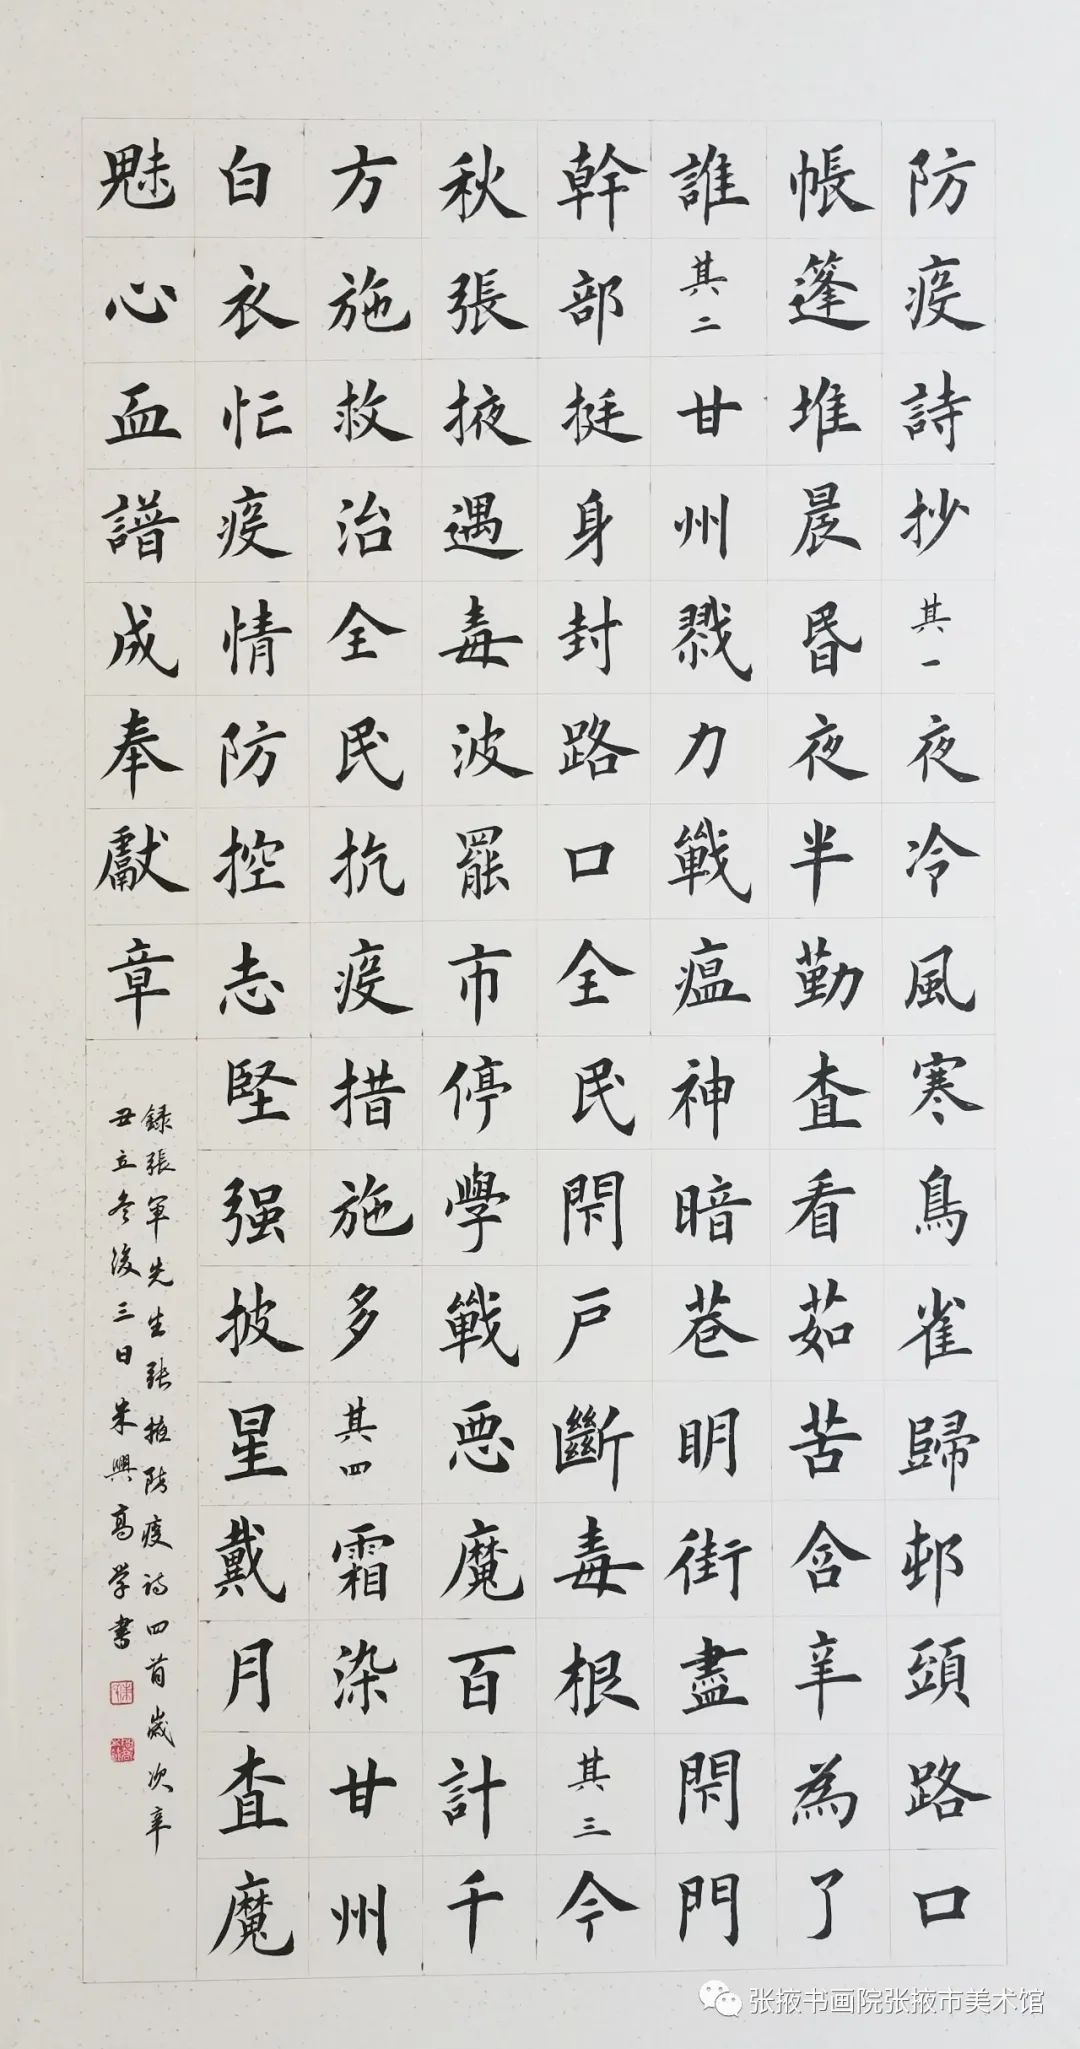 防疫詩抄其一夜冷風寒鳥雀歸邨頭路口
帳篷堆晨昏夜半勤查看茹苦含辛為了
誰其二甘州戮力戰瘟神暗巷明街盡閇門
幹部挺身封路口全民閇戶斷毒根其三今
秋張掖遇毒波罷市停學戰惡魔百計千
方施救治全民抗疫措施多其四霜染甘州
白衣忙疫情防控志堅强披星戴月查魔
魅心血譜成奉獻章
錄張軍先生張掖防疫詩四首歲次辛
丑立冬後三日朱興高学書
张掖书画院张掖市美术馆